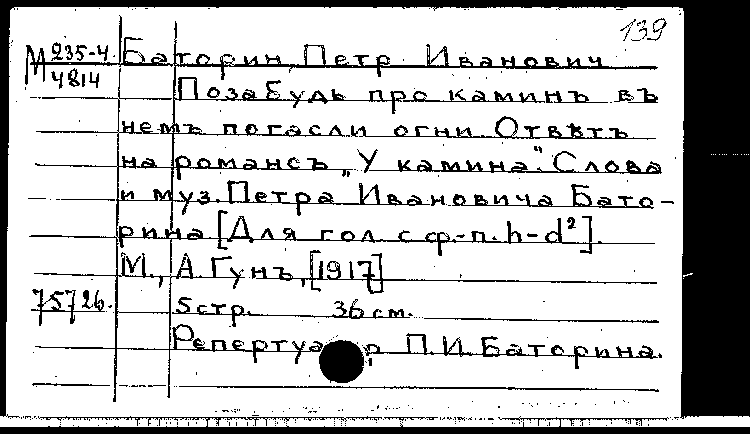 139
М 235-4/4814 Баторин, Петр Иванович
Позабудь про каминъ въ
немъ погасли огни. Отвѣтъ
на романсъ „У камина". Слова
и муз. Петра Ивановича Бато-
рина [Для гол. с ф.-п. h-d²].
М., А. Гунъ, [1917]
75726. 5 стр. 36 см.
Репертуар П.И. Баторина.